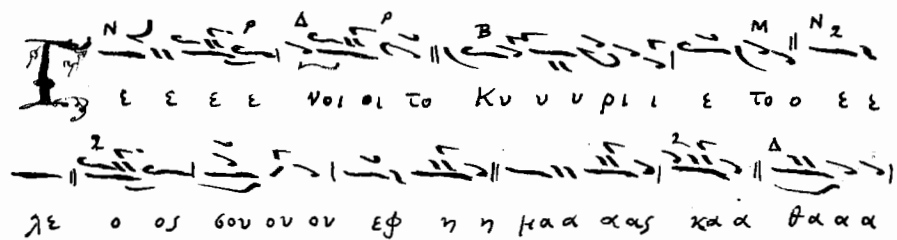 Γ ε ε ε ε νοι οι το Κυ υ υ ρι ι ε το ο ε ε
λε ο ος σου ου ου εφ η η μα α α ας κα α θα α α